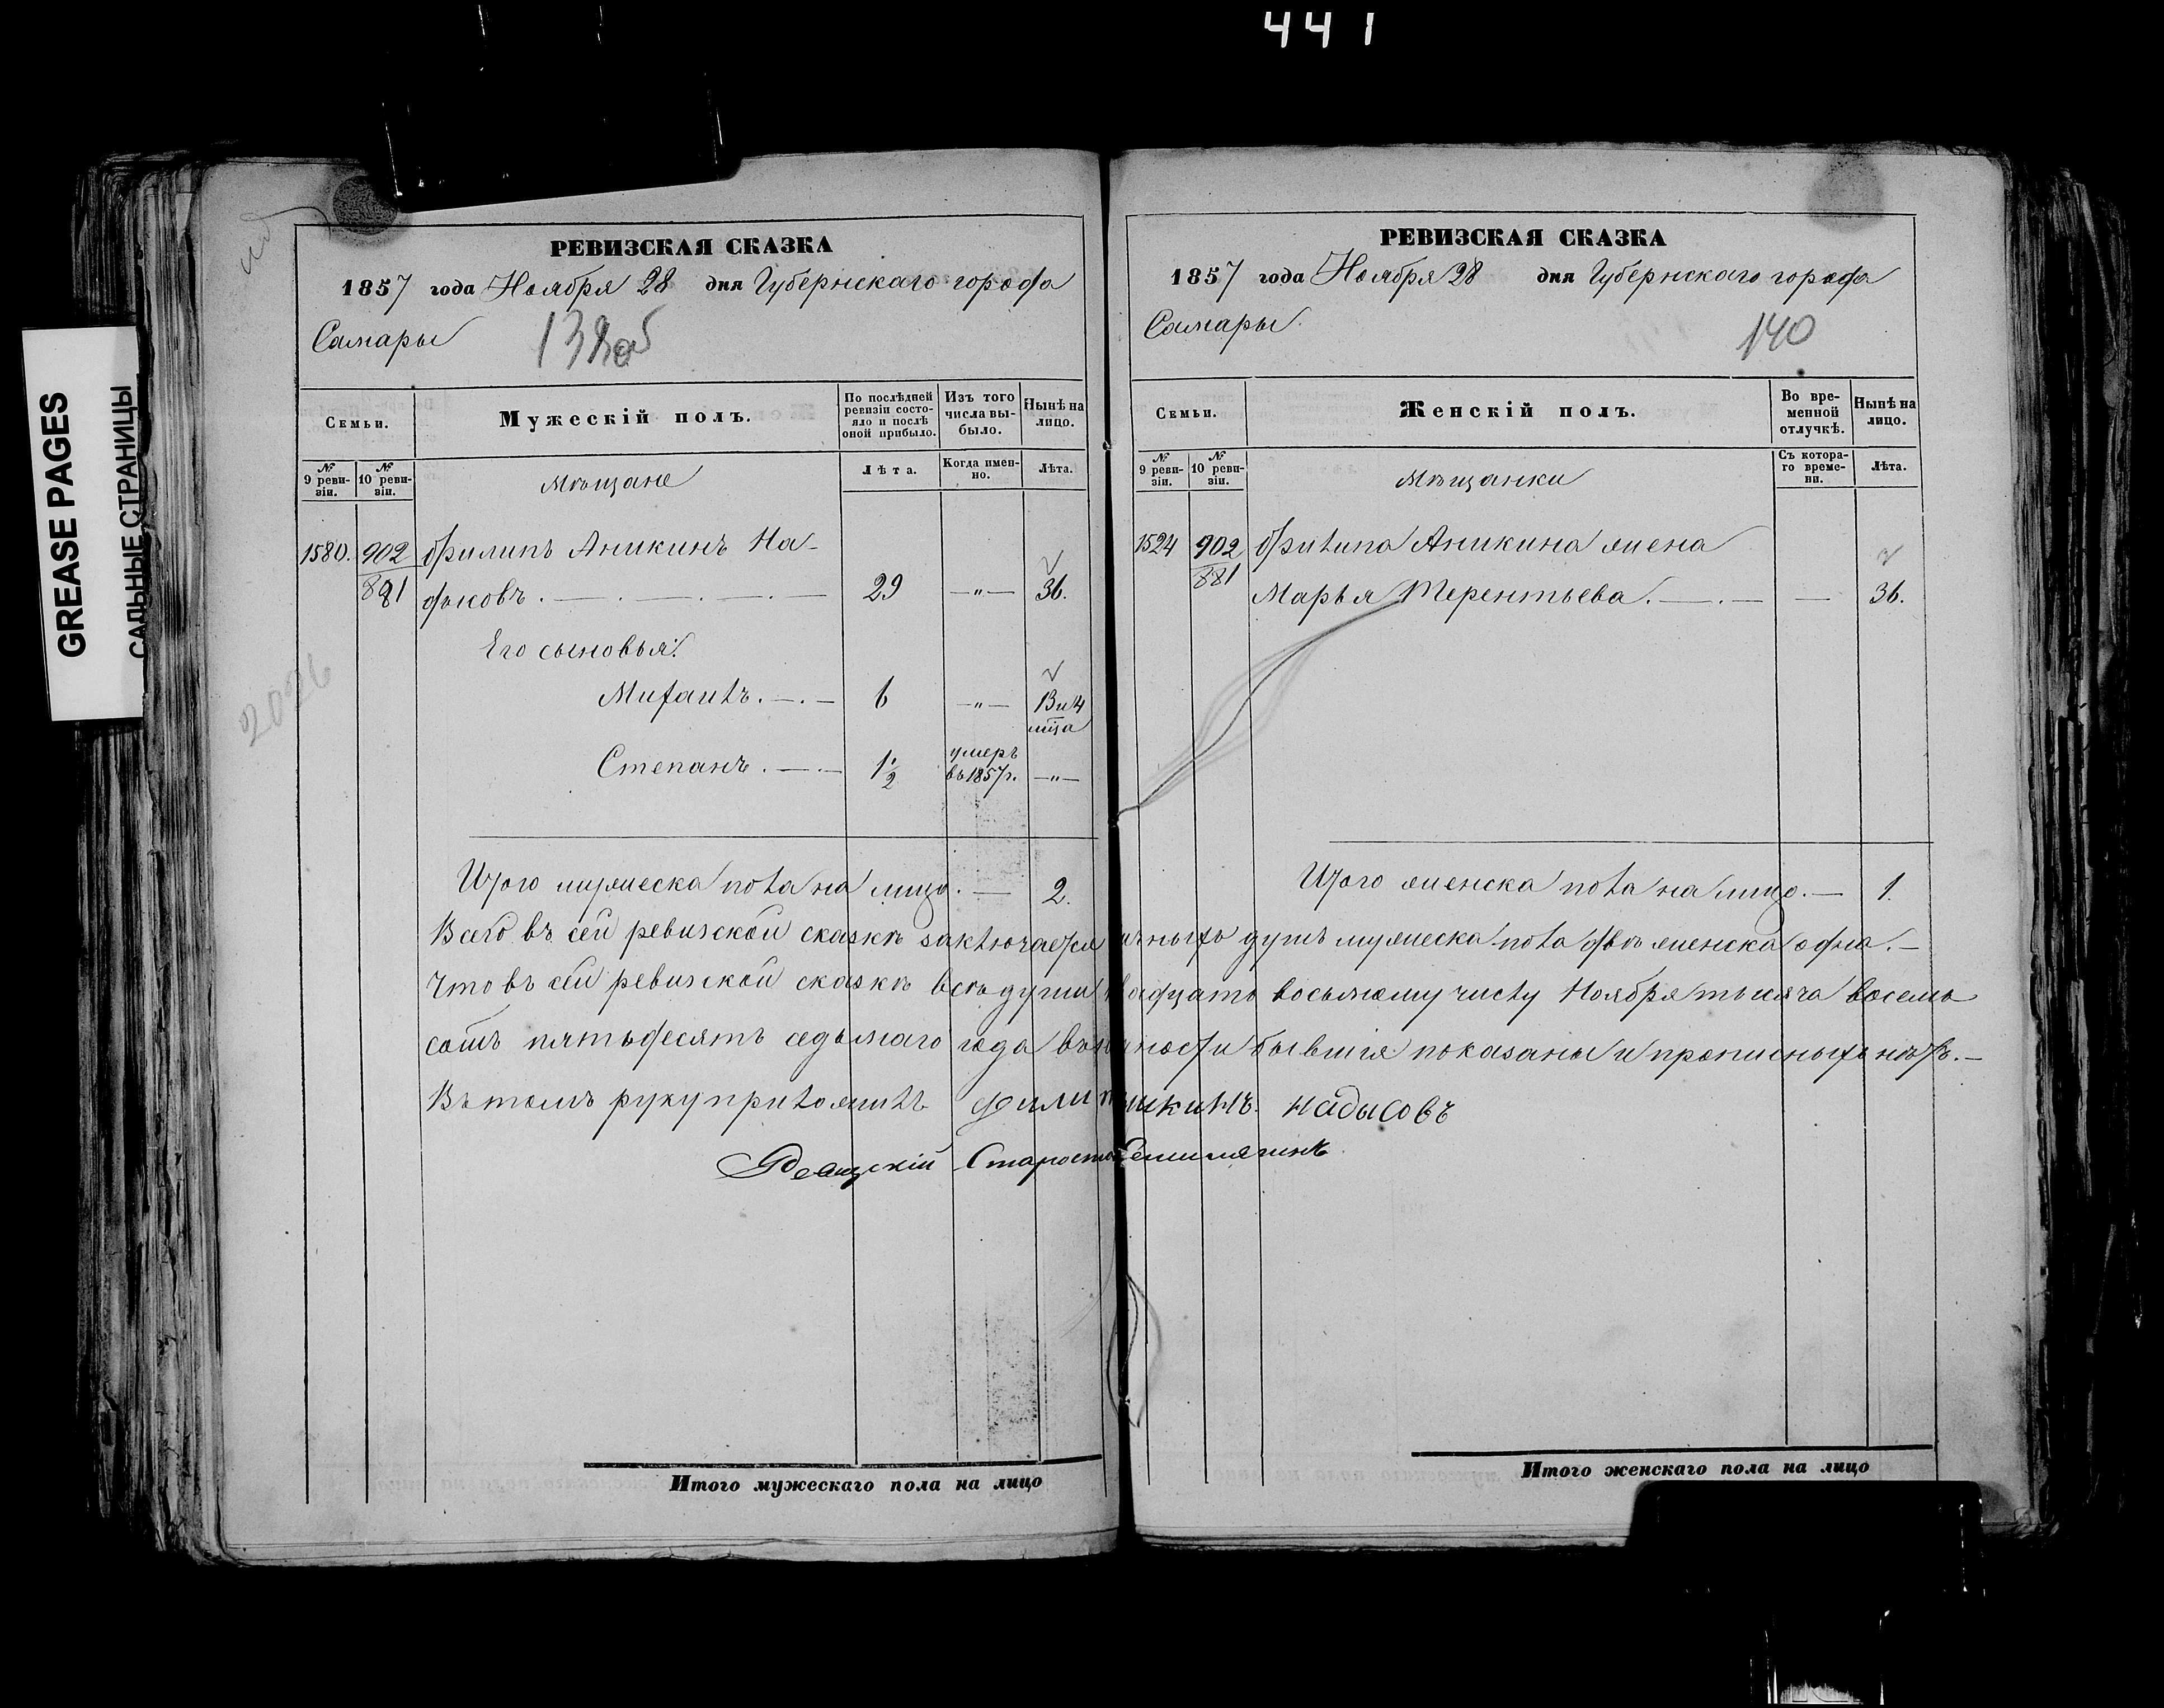 441
GREASE PAGES
САЛЬНЫЕ СТРАНИЦЫ
РЕВИЗСКАЯ СКАЗКА
1857 года Ноября 28 дня Губернскаго города
Самары
Семьи.
Мужескій полъ.
По послѣдней ревизіи состояло и послѣ оной прибыло.
Изъ того числа выбыло.
Нынѣ на лицо.
№ 9 ревизіи.
№ 10 ревизіи.
Мѣщане
Лѣта.
Когда именно.
Лѣта.
1580. 902 Филипъ Аникинъ На-
881 дысовъ. 29 —"— 36.
Его сыновья:
Михаилъ. 6 —"— 13 и 4
мѣся
Степанъ. 1 1/2 умеръ
въ 1857 г. —"—
Итого мужеска пола на лицо. — 2.
Итого мужескаго пола на лицо
РЕВИЗСКАЯ СКАЗКА
1857 года Ноября 28 дня Губернскаго города
Самары
140
Семьи.
Женскій полъ.
Во временной отлучкѣ.
Нынѣ на лицо.
№ 9 ревизіи.
№ 10 ревизіи.
Мѣщанки
Съ котораго времени.
Лѣта.
1524 902 Филипа Аникина жена
881 Марья Терентьева. — 36.
Итого женска пола на лицо. — 1.
Всего въ сей ревизской сказкѣ заключается душъ мужеска пола двѣ женска одна. —
Что въ сей ревизской сказкѣ всѣ души двадцать восьмому числу Ноября тысяча восемь
сотъ пятьдесятъ седьмаго года бывшія показаны и прописныхъ нѣтъ. —
Въ томъ руку приложилъ Филип надысовъ
Староста
Итого женскаго пола на лицо